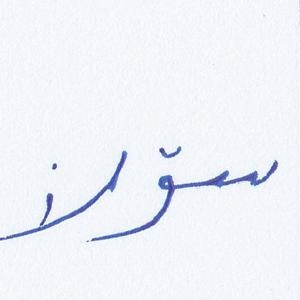 سۆلاز